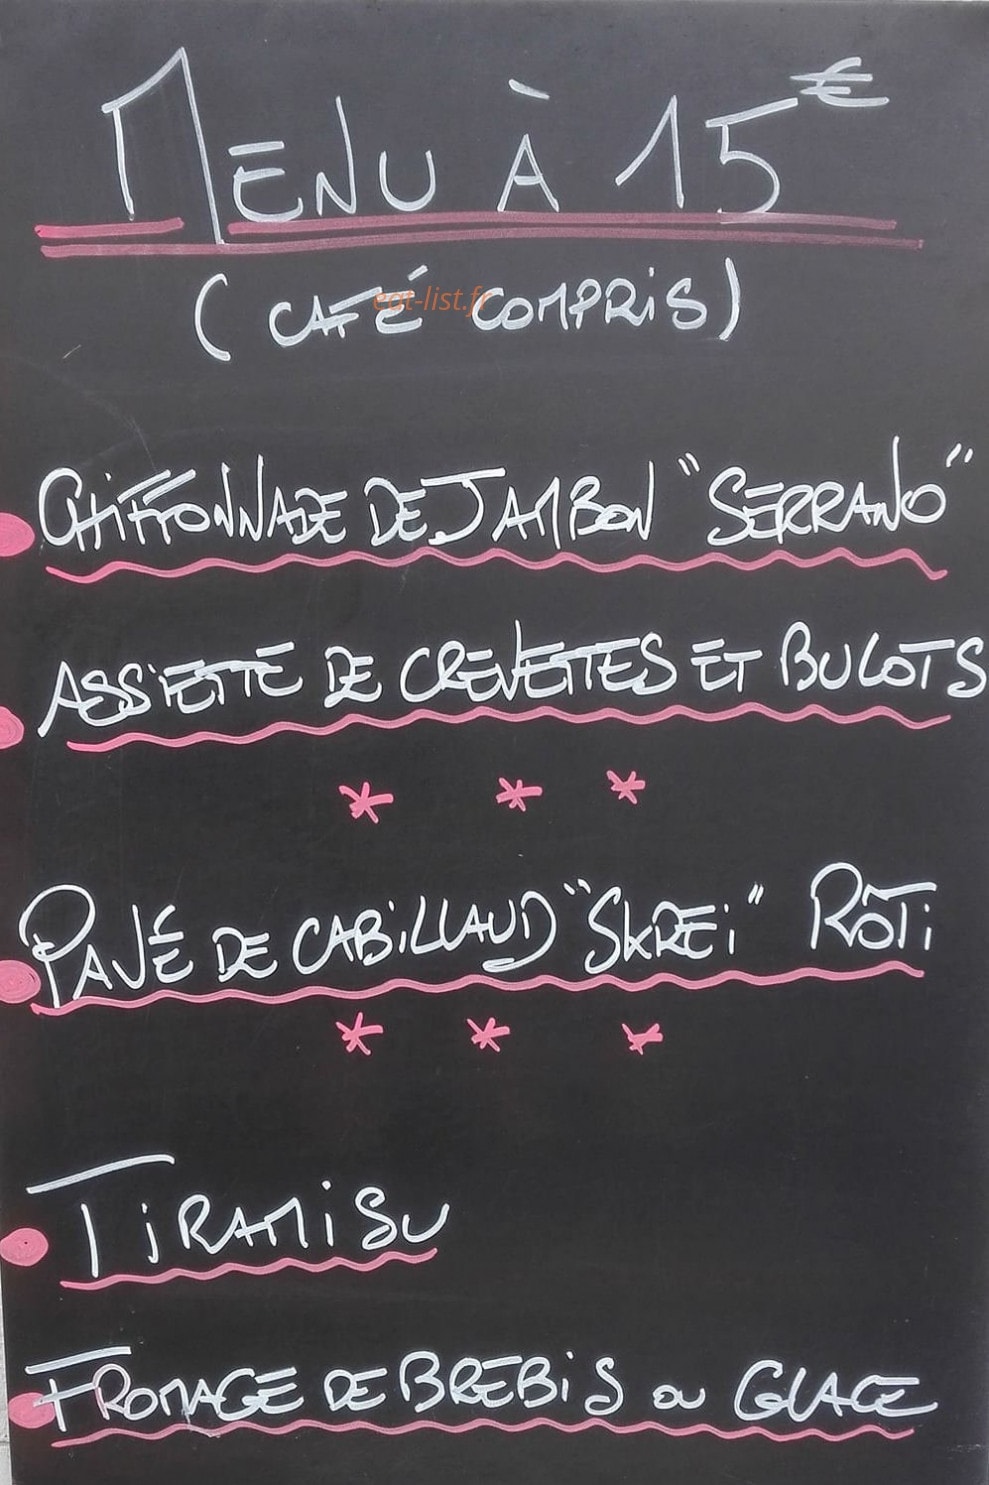 MENU À 15€
(CAFÉ COMPRIS)
eat-list.fr
CHIFFONNADE DE JAMBON "SERRANO"
ASSIETTE DE CREVETTES ET BULOTS
* * *
PAVÉ DE CABILLAUD "SKREI" RÔTI
* * *
TIRAMISU
FROMAGE DE BREBIS OU GLACE